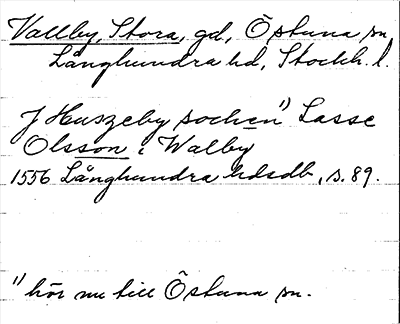 Vallby, Stora, gd, Östuna sn,
Långhundra hd, Stockh. l.
J Huszeby sochen¹⁾ Lasse
Olsson i Walby
1556 Långhundra hdsdb, s. 89.
¹⁾ hör nu till Östuna sn.